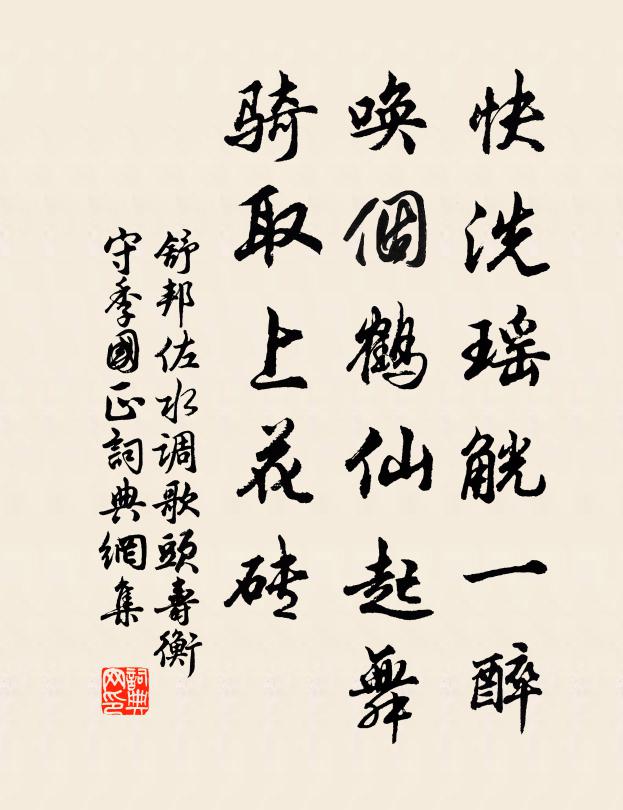 快洗瑶觥一醉
唤個鹤仙起舞
骑取上花砖
舒邦佐水调歌頭壽衡
守季國正詞典網集
詞典网印